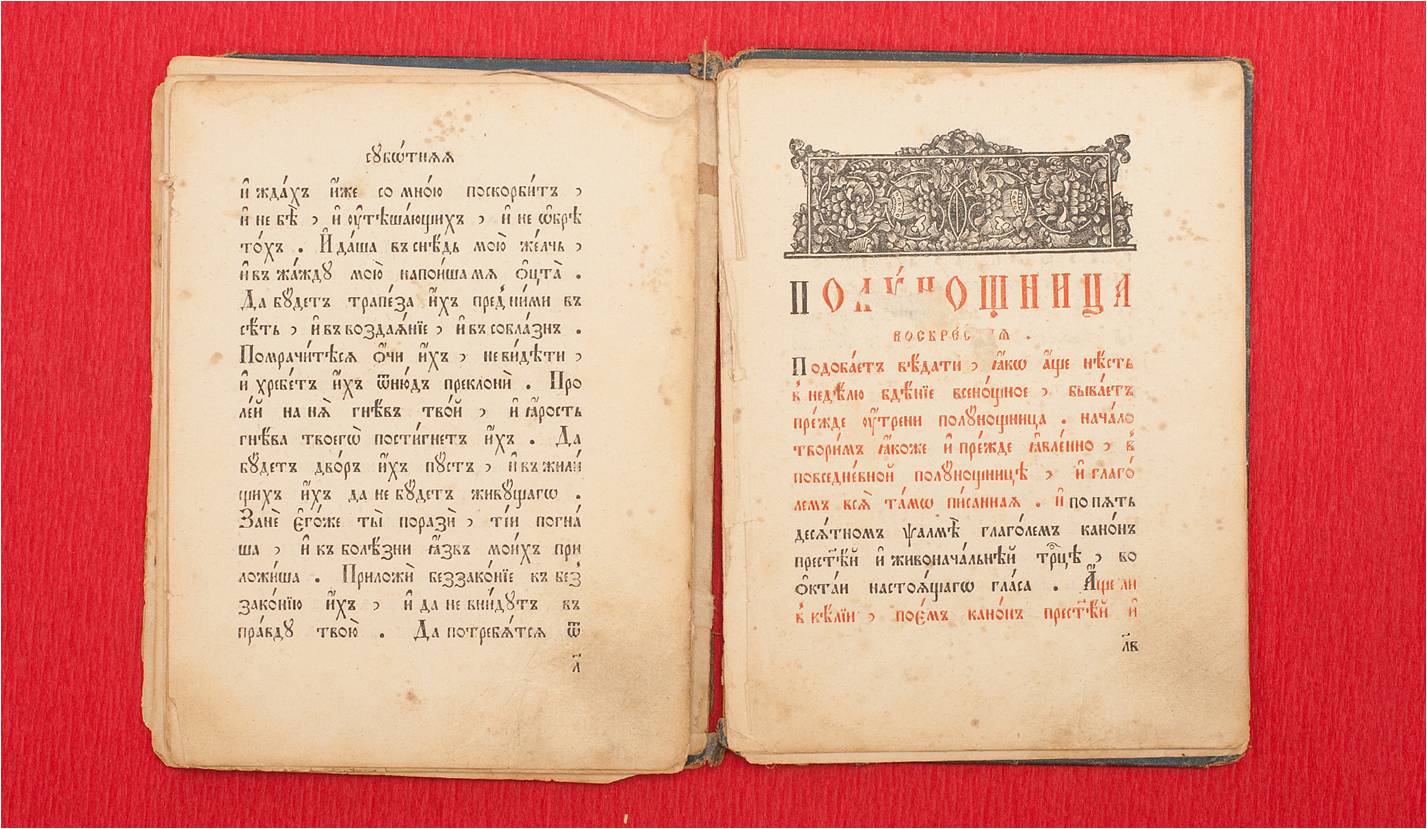 сꙋбѡ́тнаѧ
и҆ жда́хъ и҆́же со мно́ю поскорби́тъ ,
и҆ не бѣ̀ , и҆ ᲂу҆тѣша́ющихъ , и҆ не ѡ҆брѣ
то́хъ . И҆ да́ша въ снѣ́дь мою̀ же́лчь ,
и҆ въ жа́ждꙋ мою̀ напои́ша мѧ ѻ҆́цта̀ .
Да бꙋ́детъ трапе́за и҆́хъ пред̾ ни́ми въ
сѣ́ть , и҆ въ воздаѧ́нїе , и҆ въ собла́знъ .
Помрачи́тѣсѧ ѻ҆́чи и҆́хъ , не ви́дѣти ,
и҆ хребе́тъ и҆́хъ ѿню́дъ преклонѝ . Про
ле́й на нѧ̀ гнѣ́въ тво́й , и҆ ꙗ҆́рость
гнѣ́ва твоегѡ̀ пости́гнетъ и҆́хъ . Да
бꙋ́детъ дво́ръ и҆́хъ пꙋ́стъ , и҆ въ жили́
щихъ и҆́хъ да не бꙋ́детъ живꙋ́щагѡ .
Занѐ є҆го́же ты̀ поразѝ , ті́и погна́
ша , и҆ къ болѣ́зни ꙗ҆́звъ мои́хъ при
ложи́ша . Приложѝ беззако́нїе къ без̾
зако́нїю и҆́хъ , и҆ да не вни́дꙋтъ въ
пра́вдꙋ твою̀ . Да потребѧ́тсѧ ѿ
л҃
ПОЛꙊ́НОЩНИЦА
Подоба́етъ вѣ́дати , ꙗ҆́кѡ а҆́ще нѣ́сть
в̾ недѣ́лю бдѣ́нїе всено́щное , быва́етъ
пре́жде ᲂу҆́трени полꙋ́нощница . нача́ло
твори́мъ ꙗ҆́коже и҆ пре́жде ꙗ҆вле́нно , в̾
повседне́вной полꙋ́нощницѣ , и҆ глаго́
лемъ всѧ̀ та́мѡ пи́саннаѧ . и҆ по пѧть
десѧ́тномъ ѱалмѣ̀ глаго́лемъ кано́нъ
прест҃ѣ́й и҆ живонача́льнѣй трⷪ҇цѣ , во
ѻ҆кта́и настоѧ́щагѡ гла́са . А҆́ще ли
в̾ ке́лїи , пое́мъ кано́нъ прест҃ѣ́й и҆
л҃в